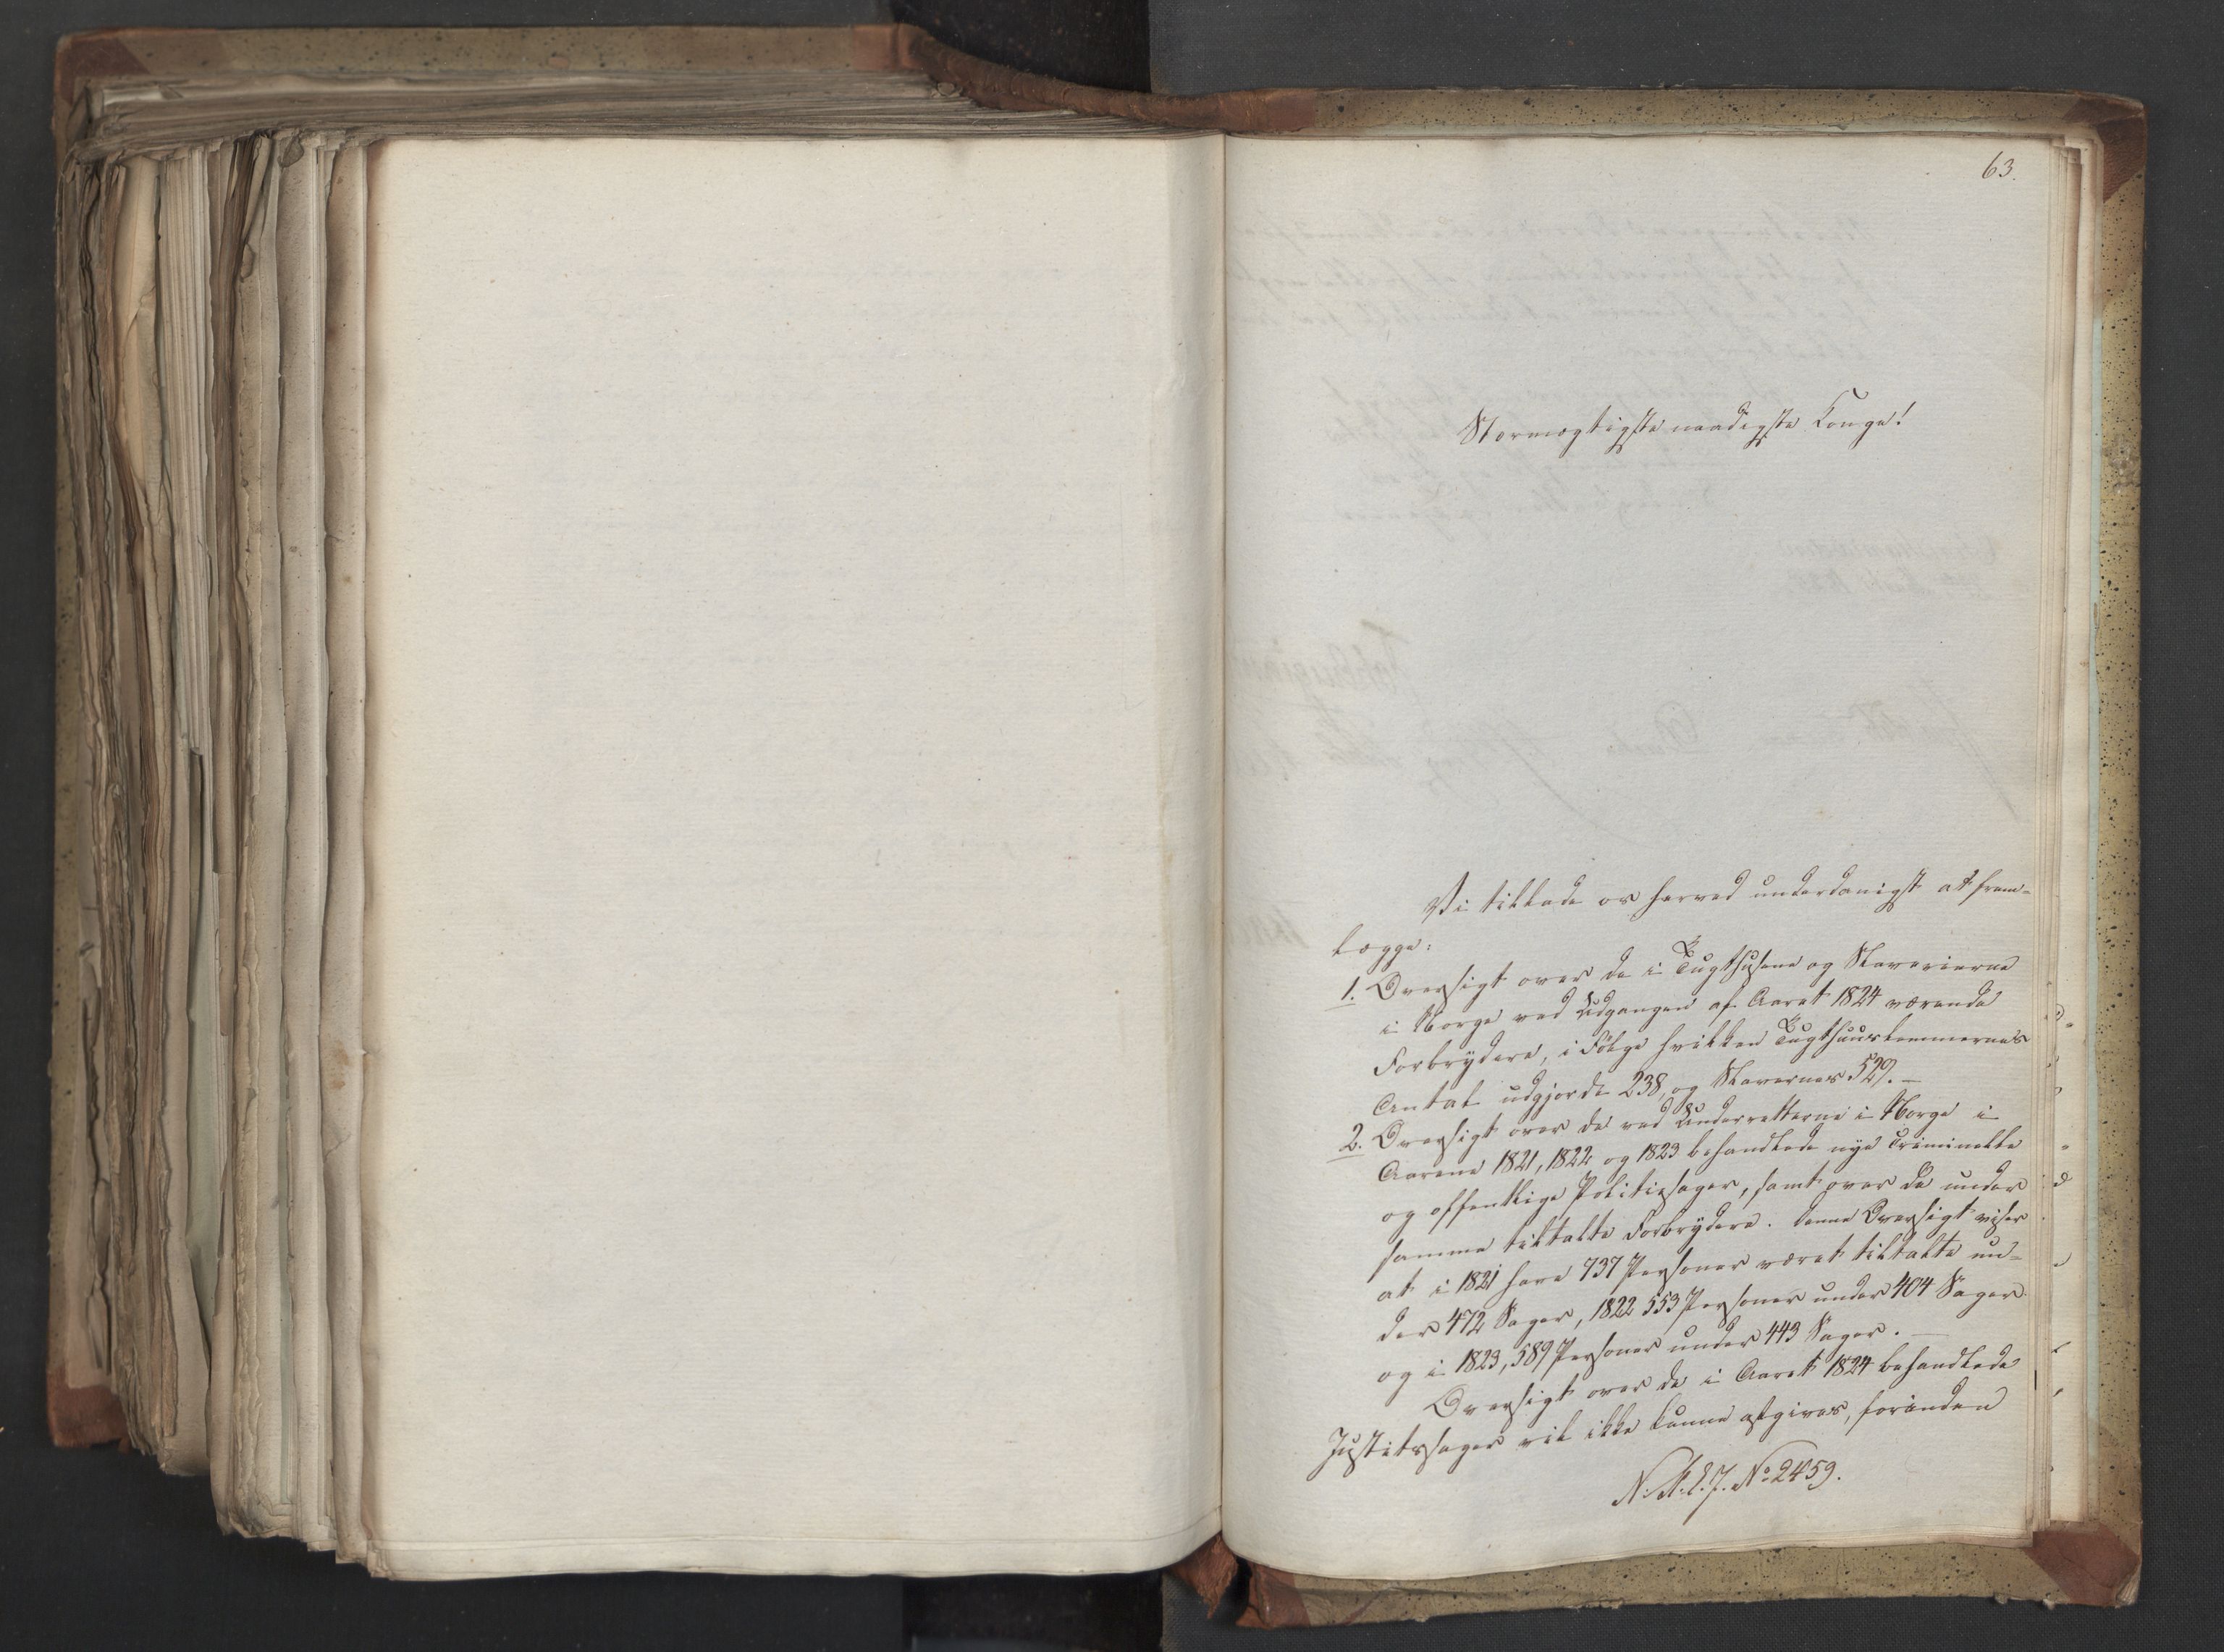 63.
Stormægtigste naadigste Konge!
Vi tillade os herved underdanigst at frem-
lægge:
1. Oversigt over de i Tugthusene og Slaverierne
i Norge ved Udgangen af Aaret 1824 værende
Forbrydere, i Følge hvilken Tugthuuslemmernes
Antal udgjorde 238, og Slavernes 529. —
2. Oversigt over de ved Underretterne i Norge i
Aarene 1821, 1822 og 1823 behandlede nye Criminelle
og offentlige Politiesager, samt over de under
samme tiltalte Forbrydere. Denne Oversigt viser
at i 1821 have 737 Personer været tiltalte un-
der 472 Sager, 1822 553 Personer under 404 Sager
og i 1823, 589 Personer under 443 Sager. —
Oversigt over de i Aaret 1824 behandlede
Justitssager vil ikke kunne afgives, forinden
No. 2459.